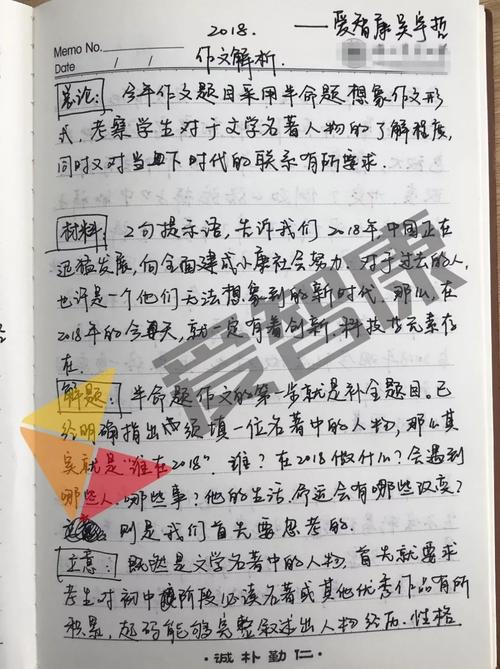 2018.
——爱智康吴宇哲
Memo No.
Date / /
作文解析.
总论: 今年作文题目采用半命题想象作文形
式, 考察学生对于文学名著人物的了解程度,
同时又对当下时代的联系有所要求.
材料: 2句提示语, 告诉我们2018年中国正在
迅猛发展, 向全面建成小康社会努力. 对于过去的人,
也许是一个他们无法想象到的新时代. 那么, 在
2018年的今天, 就一定有着创新, 科技等元素存
在.
解题: 半命题作文的第一步就是补全题目. 已
经明确指出必须填一位名著中的人物, 那么其
实就是“谁在2018”. 谁? 在2018做什么? 会遇到
哪些人. 哪些事? 他的生活. 命运会有哪些改变?
则是我们首先要思考的.
立意: 既然是文学名著中的人物, 首先就要求
考生对初中阶段必读名著或其他优秀作品有所
积累, 起码能够完整叙述出人物经历. 性格
诚朴勤仁
爱智康